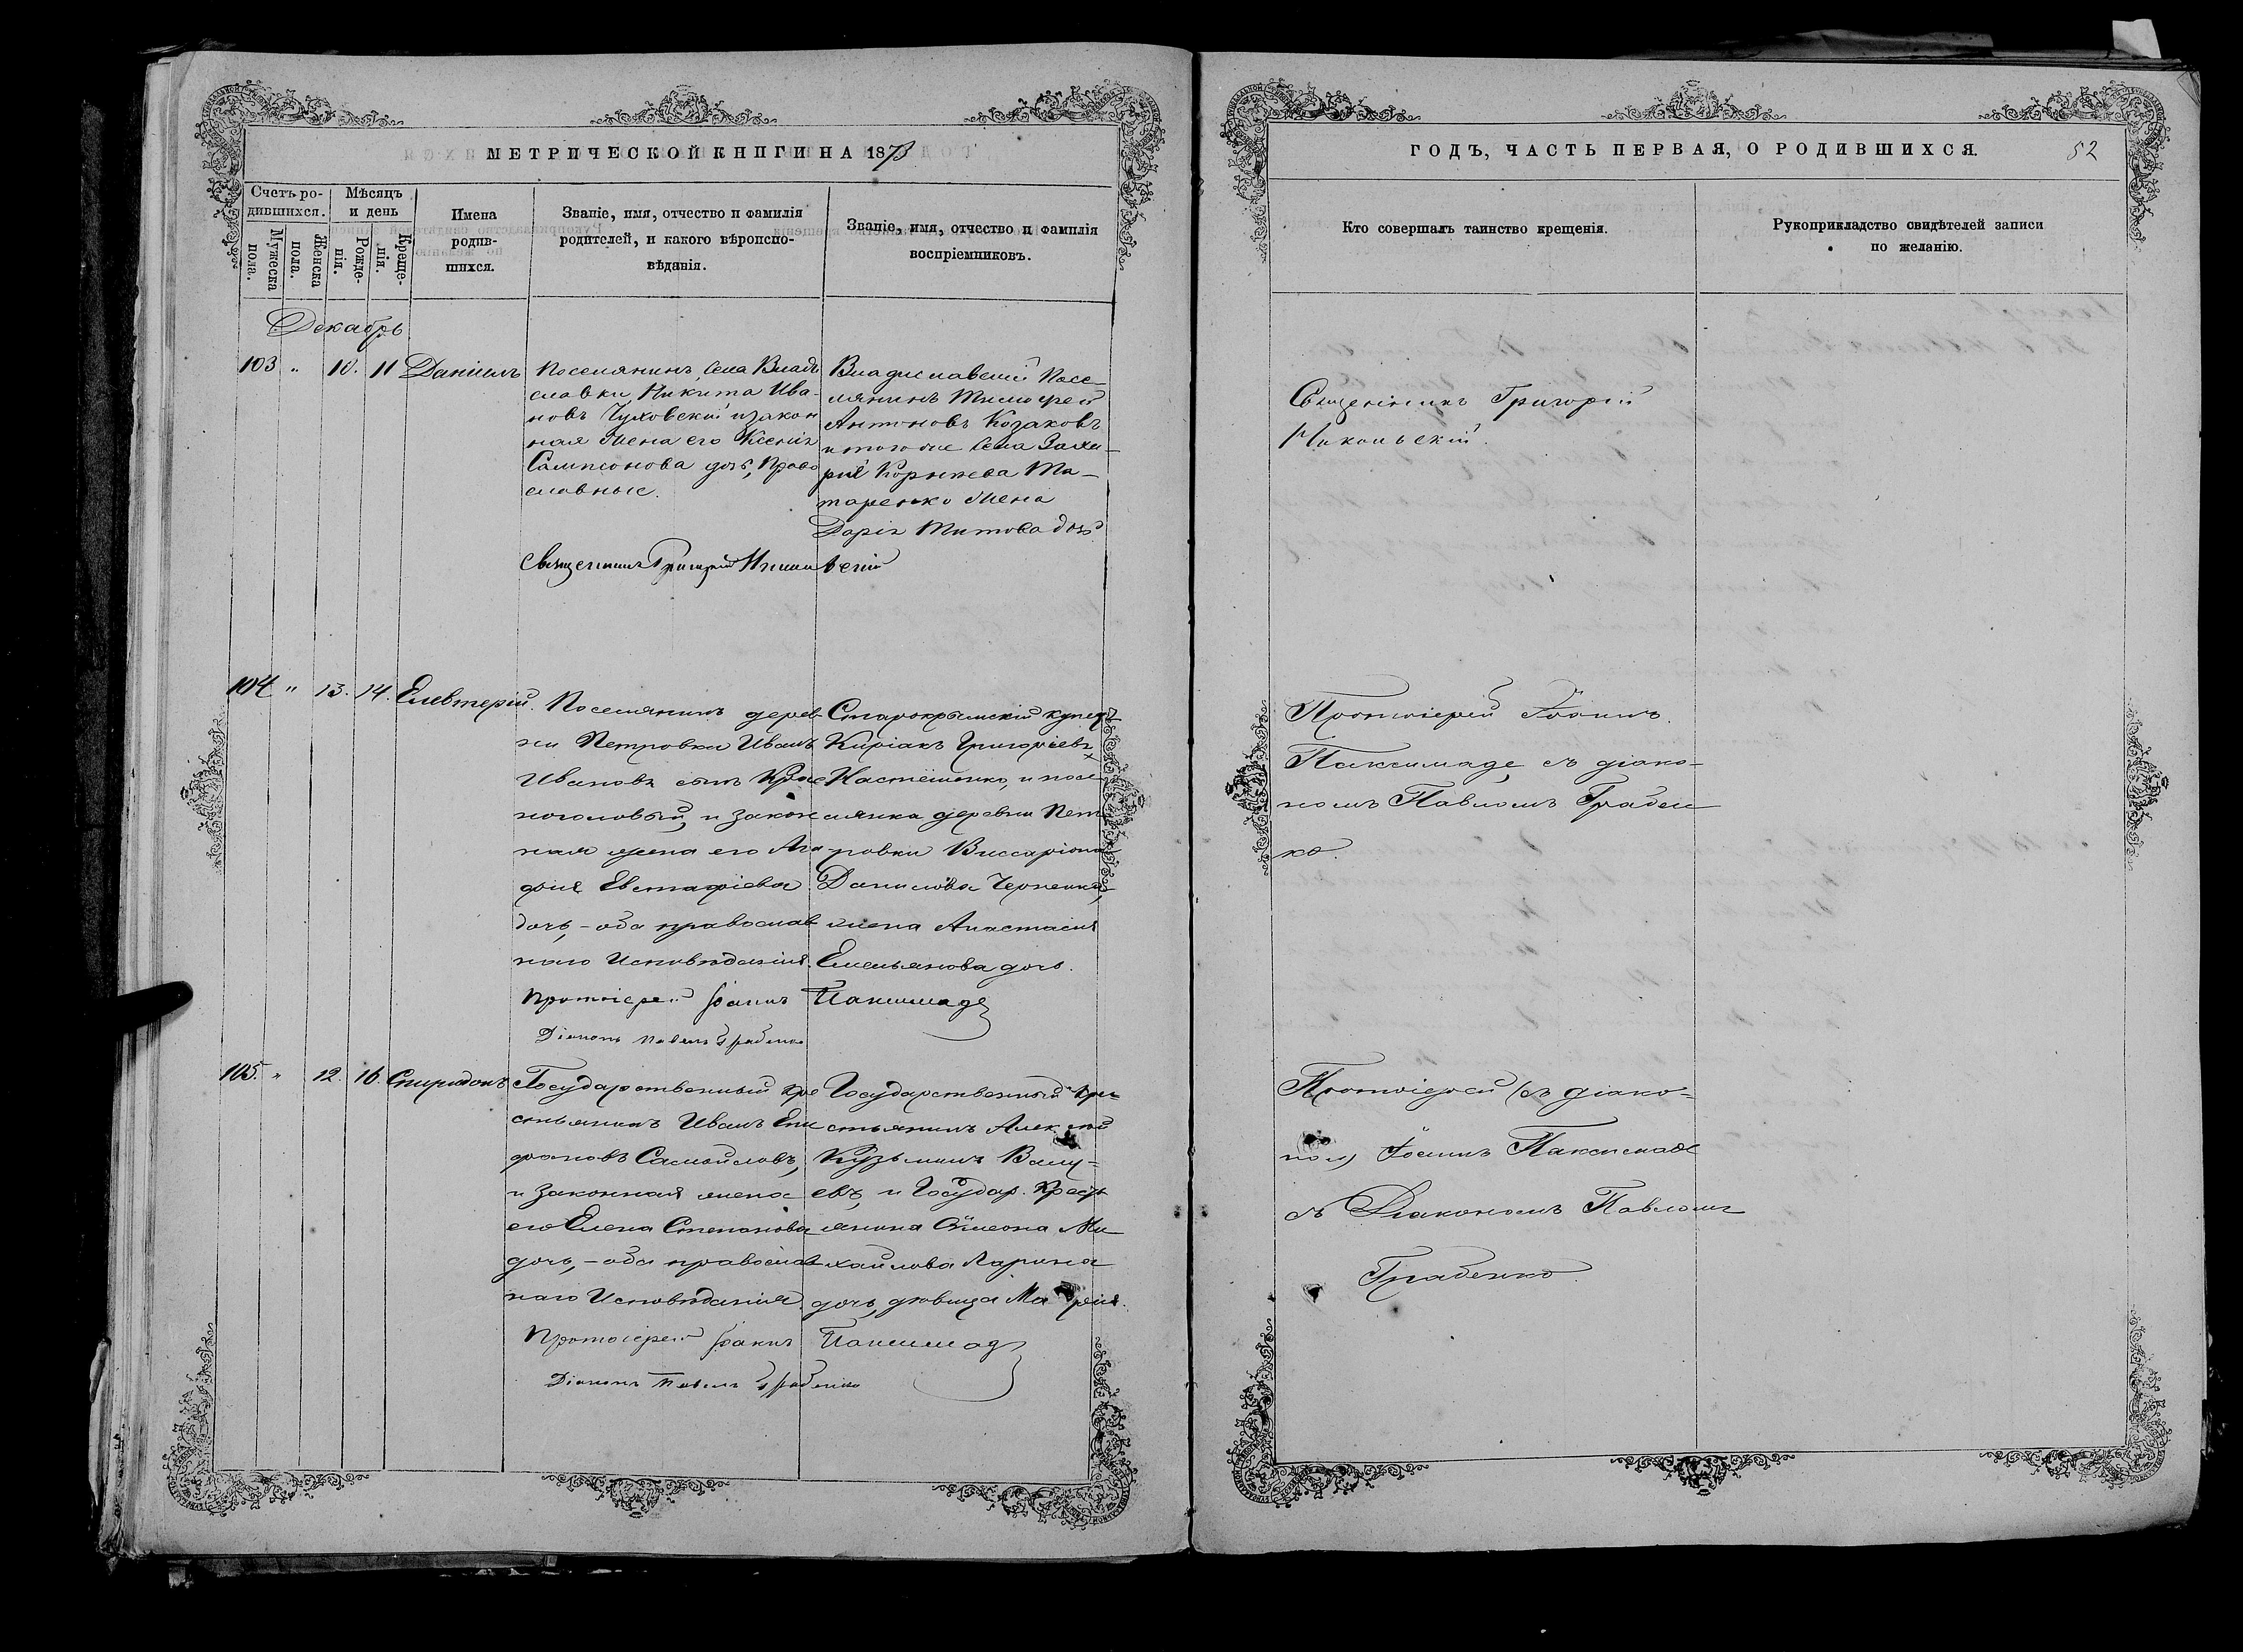 МЕТРИЧЕСКОЙ КНИГИ НА 1873
Счетъ ро-
дившихся.
Мѣсяцъ
и день
Мужеска
пола.
Женска
пола.
Рожде-
нія.
Креще-
нія.
Имена
родив-
шихся.
Званіе, имя, отчество и фамилія
родителей, и какого вѣроиспо-
вѣданія.
Званіе, имя, отчество и фамилія
воспріемниковъ.
Декабрь
103 " 10. 11 Даніилъ
Поселянинъ Села Влади
славки Никита Ива-
новъ Чуховскій и закон
ная жена его Ксенія
Сампсонова дочь, Право
славные.
Владиславскій Посе-
лянинъ Тимофей
Антоновъ Козаковъ
и того же Села Заха-
рія Корнѣева Та-
таренко жена
Дарія Титова дочь
Священникъ Григорій Никольскій
104 " 13. 14. Елевтерій.
Поселянинъ дерев-
ни Петровки Иванъ
Ивановъ сынъ Крас
ноголовый, и закон
ная жена его Ага-
фія Евстафіева
дочь, - оба православ
наго Исповѣданія.
Старокрымскій купецъ
Киріакъ Григоріевъ
и посе-
лянка деревни Пет
ровки Виссаріона
Данилова Черненка,
жена Анастасія
Емельянова дочь.
Протоіерей Іоаннъ Паксимаде
Діаконъ Павелъ Грабенко
105. " 12. 16. Спиридонъ
Государственный кре
стьянинъ Иванъ Епи
фановъ Самойловъ,
и законная жена
его Елена Степанова
дочь, - оба православ
наго Исповѣданія.
Государственный кре-
стьянинъ Алексѣй
Кузьминъ
евъ, и Государ. Кресть
янина Симеона Ми
хайлова Ларина
дочь, дѣвица Марія.
Протоіерей Іоаннъ Паксимаде
Діаконъ Павелъ Грабенко
ГОДЪ, ЧАСТЬ ПЕРВАЯ, О РОДИВШИХСЯ.
52
Кто совершалъ таинство крещенія.
Рукоприкладство свидѣтелей записи
по желанію.
Священникъ Григорій
Никольскій.
Протоіерей Іоаннъ
Паксимаде, съ діако-
номъ Павломъ Грабен
ко.
Протоіерей (съ діако-
ном) Іоаннъ Паксимаде
съ Діакономъ Павломъ
Грабенко.